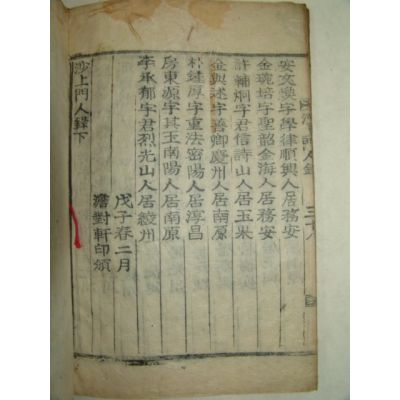 安文奐字學律順興人居務安
金琬培字聖韶金海人居務安
許輔炯字君信詩山人居玉果
金興述字善卿慶州人居南原
朴鍾厚字重法密陽人居淳昌
房東源字其玉南陽人居南原
李承郁字君烈光山人居綾州
戊子春二月
澹對軒印頒
沙上門人錄下